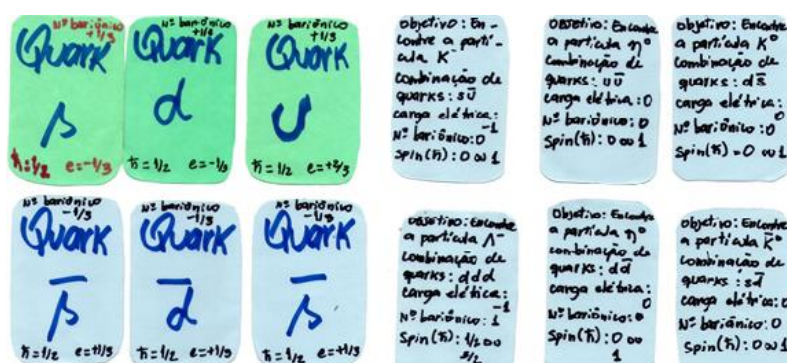 Nº bariônico
+1/3
Quark
s
ħ=1/2 e=-1/3
Nº bariônico
Quark
d
ħ=1/2 e=-1/3
Nº bariônico
+1/3
Quark
U
ħ=1/2 e=+2/3
Objetivo: En-
contre a partí-
cula K⁻
combinação de
quarks: sū
carga elétrica:
-1
Nº bariônico: 0
Spin(ħ): 0 ou 1
Objetivo: Encontre
a partícula η⁰
combinação de
quarks: uū
carga elétrica: 0
Nº bariônico: 0
Spin(ħ): 0 ou 1
objetivo: Encontre
a partícula K⁰
combinação de
quarks: ds̅
carga elétrica:
0
Nº bariônico: 0
Spin(ħ)=0 ou 1
Nº bariônico
-1/3
Quark
s̅
ħ=1/2 e=+1/3
Nº bariônico
-1/3
Quark
d̅
ħ=1/2 e=+1/3
Nº bariônico
-1/3
Quark
s̅
ħ=1/2 e=+1/3
Objetivo: Encontre
a partícula Λ⁻
combinação de
quarks: ddd
carga elétrica:
-1
Nº bariônico: 1
Spin(ħ): 1/2 ou
3/2
Objetivo: Encontre
a partícula η⁰
combinação de
quarks: dd̅
carga elétrica:
0
Nº bariônico: 0
Spin(ħ): 0 ou
1
objetivo: Encontre
a partícula K̅⁰
combinação de
quarks: sd̅
carga elétrica: 0
Nº bariônico: 0
Spin(ħ): 0 ou 1